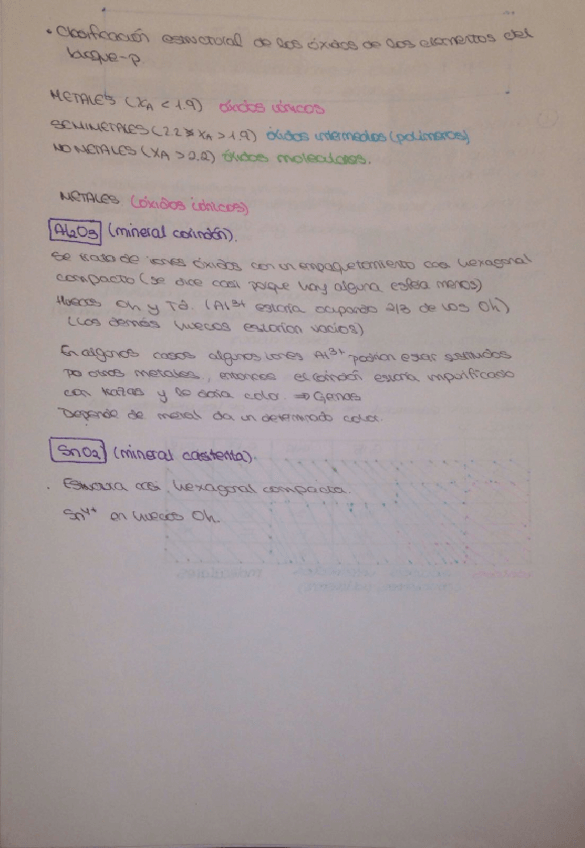 • Clasificación estructural de los óxidos de los elementos del
bloque-p
METALES (XA < 1.9) óxidos iónicos
SEMIMETALES (2.2 ≥ XA > 1.9) óxidos intermedios (polímeros)
NO METALES (XA > 2.2) óxidos moleculares.
METALES (óxidos iónicos)
Al2O3 (mineral corindón).
Se trata de iones óxidos con un empaquetamiento casi hexagonal
compacto (se dice casi porque hay alguna esfera menos)
Huecos Oh y Td. (Al3+ estaría ocupando 2/3 de los Oh)
(Los demás huecos estarían vacíos)
En algunos casos algunos iones Al3+ podrían estar sustituidos
por otros metales, entonces el corindón estaría impurificado
con trazas y le daría color ⇒ Gemas
Depende de metal da un determinado color.
SnO2 (mineral casiterita).
. Estructura casi hexagonal compacta.
Sn4+ en huecos Oh.